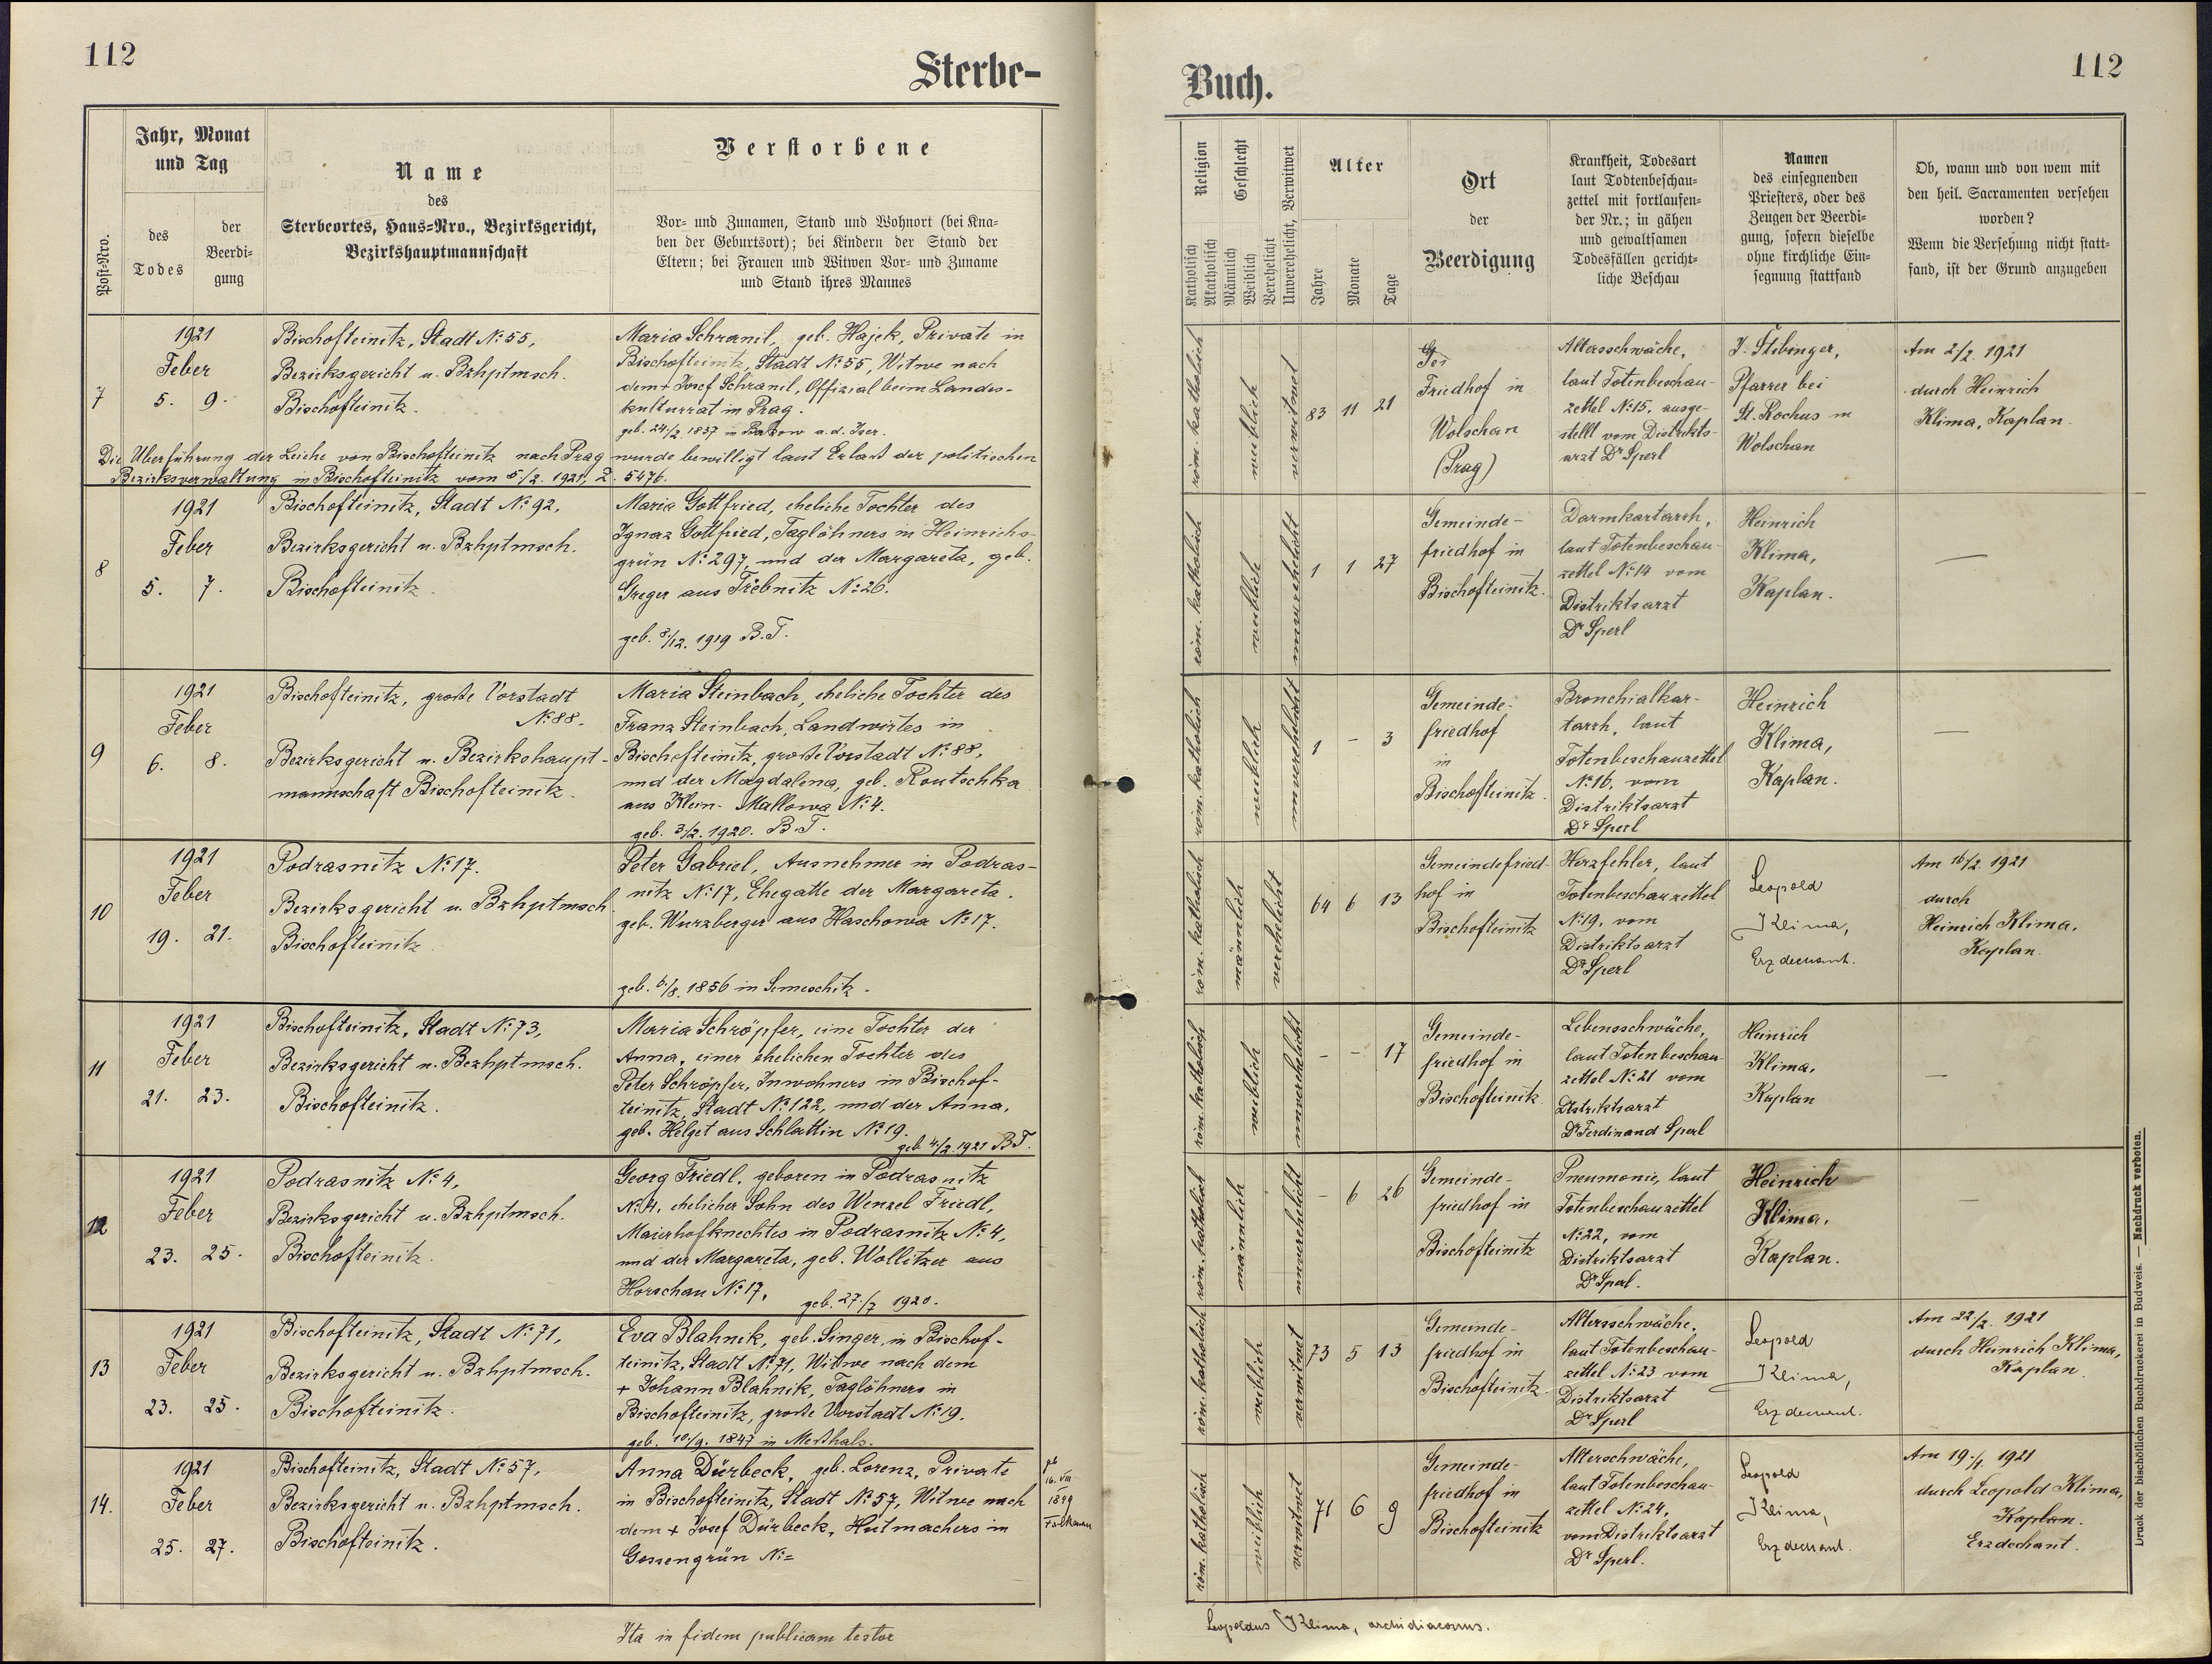 112
Sterbe-
Post-Nro.
Jahr, Monat
und Tag
des
Todes
der
Beerdi-
gung
Name
des
Sterbeortes, Haus-Nro., Bezirksgericht,
Bezirkshauptmannschaft
Verstorbene
Vor- und Zunamen, Stand und Wohnort (bei Kna-
ben der Geburtsort); bei Kindern der Stand der
Eltern; bei Frauen und Witwen Vor- und Zuname
und Stand ihres Mannes
7
1921
Feber
5. 9.
Bischofteinitz, Stadt No 55,
Bezirksgericht u. Bzhptmsch.
Bischofteinitz.
Maria Schranil, geb. Hajek, Private in
Bischofteinitz, Stadt No 55, Witwe nach
dem + Josef Schranil, Offizial beim Landes-
kulturrat in Prag.
geb. 24./2. 1837 in Bakow a. d. Iser.
Die Überführung der Leiche von Bischofteinitz nach Prag wurde bewilligt laut Erlass der politischen
Bezirksverwaltung in Bischofteinitz vom 5./2. 1921, Z. 5476.
8
1921
Feber
5. 7.
Bischofteinitz, Stadt No 92,
Bezirksgericht u. Bzhptmsch.
Bischofteinitz.
Maria Gottfried, eheliche Tochter des
Ignaz Gottfried, Taglöhners in Heinrichs-
grün No 297, und der Margareta, geb.
Greger aus Trebnitz No 26.
geb. 8/12. 1919 B.T.
9
1921
Feber
6. 8.
Bischofteinitz, große Vorstadt
No 88.
Bezirksgericht u. Bezirkshaupt-
mannschaft Bischofteinitz.
Maria Steinbach, eheliche Tochter des
Franz Steinbach, Landwirtes in
Bischofteinitz, große Vorstadt No 88,
und der Magdalena, geb. Routschka
aus Klein-Mallowa No 4.
geb. 3/2. 1920. B.T.
10
1921
Feber
19. 21.
Podrasnitz No 17.
Bezirksgericht u. Bzhptmsch.
Bischofteinitz
Peter Gabriel, Ausnehmer in Podras-
nitz No 17, Ehegatte der Margareta.
geb. Wurzberger aus Haschowa No 17.
geb. 6./8. 1856 in Semeschitz.
11
1921
Feber
21. 23.
Bischofteinitz, Stadt No 73,
Bezirksgericht u. Bezhptmsch.
Bischofteinitz.
Maria Schröpfer, eine Tochter der
Anna, einer ehelichen Tochter des
Peter Schröpfer, Inwohners in Bischof-
teinitz, Stadt No 122, und der Anna,
geb. Helget aus Schlattin No 19.
geb. 4./2. 1921 B.T.
12
1921
Feber
23. 25.
Podrasnitz No 4,
Bezirksgericht u. Bzhptmsch.
Bischofteinitz.
Georg Friedl, geboren in Podrasnitz
No 4, ehelicher Sohn des Wenzel Friedl,
Maierhofknechtes in Podrasnitz No 4,
und der Margareta, geb. Wollitzer aus
Horschau No 17,
geb. 27./7 1920.
13
1921
Feber
23. 25.
Bischofteinitz, Stadt No 71,
Bezirksgericht u. Bzhptmsch.
Bischofteinitz.
Eva Blahnik, geb. Singer, in Bischof-
teinitz, Stadt No 71, Witwe nach dem
+ Johann Blahnik, Taglöhners in
Bischofteinitz, große Vorstadt No 19.
geb. 10./9. 1847 in
14.
1921
Feber
25. 27.
Bischofteinitz, Stadt No 57,
Bezirksgericht u. Bzhptmsch.
Bischofteinitz.
Anna Dürbeck, geb. Lorenz, Private
in Bischofteinitz, Stadt No 57, Witwe nach
dem + Josef Dürbeck, Hutmachers in
Gossengrün No =
geb
16. VIII
1849
Falkenau
Ita in fidem publicam testor
112
Buch.
Religion
Katholisch
Akatholisch
Geschlecht
Männlich
Weiblich
Verehelicht
Unverehelicht, Verwitwet
Alter
Jahre
Monate
Tage
Ort
der
Beerdigung
Krankheit, Todesart
laut Todtenbeschau-
zettel mit fortlaufen-
der Nr.; in gähen
und gewaltsamen
Todesfällen gericht-
liche Beschau
Namen
des einsegnenden
Priesters, oder des
Zeugen der Beerdi-
gung, sofern dieselbe
ohne kirchliche Ein-
segnung stattfand
Ob, wann und von wem mit
den heil. Sacramenten versehen
worden?
Wenn die Versehung nicht statt-
fand, ist der Grund anzugeben
röm. katholisch
weiblich
verwitwet
83 11 21
Friedhof in
Wolschan
(Prag)
Altersschwäche,
laut Totenbeschau-
zettel No 15, ausge-
stellt vom Distrikts-
arzt Dr Sperl
J. Stibinger,
Pfarrer bei
St. Rochus in
Wolschan
Am 2/2. 1921
durch Heinrich
Klima, Kaplan.
röm. katholisch
weiblich
unverehelicht
1 1 27
Gemeinde-
friedhof in
Bischofteinitz.
Darmkartarrh,
laut Totenbeschau-
zettel No 14 vom
Distriktsarzt
Dr Sperl
Heinrich
Klima,
Kaplan.
—
röm. katholisch
weiblich
unverehelicht
1 - 3
Gemeinde-
friedhof
in
Bischofteinitz.
Bronchialkar-
tarrh, laut
Totenbeschauzettel
No 16, vom
Distriktsarzt
Dr Sperl
Heinrich
Klima,
Kaplan.
—
röm. katholisch
männlich
verehelicht
64 6 13
Gemeindefried-
hof in
Bischofteinitz
Herzfehler, laut
Totenbeschauzettel
No 19, vom
Distriktsarzt
Dr Sperl
Leopold
Klima,
Erzdechant.
Am 16/2. 1921
durch
Heinrich Klima,
Kaplan.
röm. katholisch
weiblich
unverehelicht
- - 17
Gemeinde-
friedhof in
Bischofteinitz.
Lebensschwäche,
laut Totenbeschau-
zettel No 21 vom
Distriktsarzt
Dr Ferdinand Sperl
Heinrich
Klima,
Kaplan
—
röm. katholisch
männlich
unverehelicht
- 6 26
Gemeinde-
friedhof in
Bischofteinitz
Pneumonie, laut
Totenbeschauzettel
No 22, vom
Distriktsarzt
Dr Sperl.
Heinrich
Klima,
Kaplan.
—
röm. katholisch
weiblich
verwitwet
73 5 13
Gemeinde-
friedhof in
Bischofteinitz
Altersschwäche,
laut Totenbeschau-
zettel No 23 vom
Distriktsarzt
Dr Sperl
Leopold
Klima,
Erzdechant.
Am 22/2. 1921
durch Heinrich Klima,
Kaplan.
röm. katholisch
weiblich
verwitwet
71 6 9
Gemeinde-
friedhof in
Bischofteinitz
Alterschwäche,
laut Totenbeschau-
zettel No 24,
vom Distriktsarzt
Dr Sperl.
Leopold
Klima,
Erzdechant.
Am 19./1. 1921
durch Leopold Klima,
Kaplan.
Erzdechant.
Leopoldus Klima, archidiaconus.
Druck der bischöflichen Buchdruckerei in Budweis. — Nachdruck verboten.